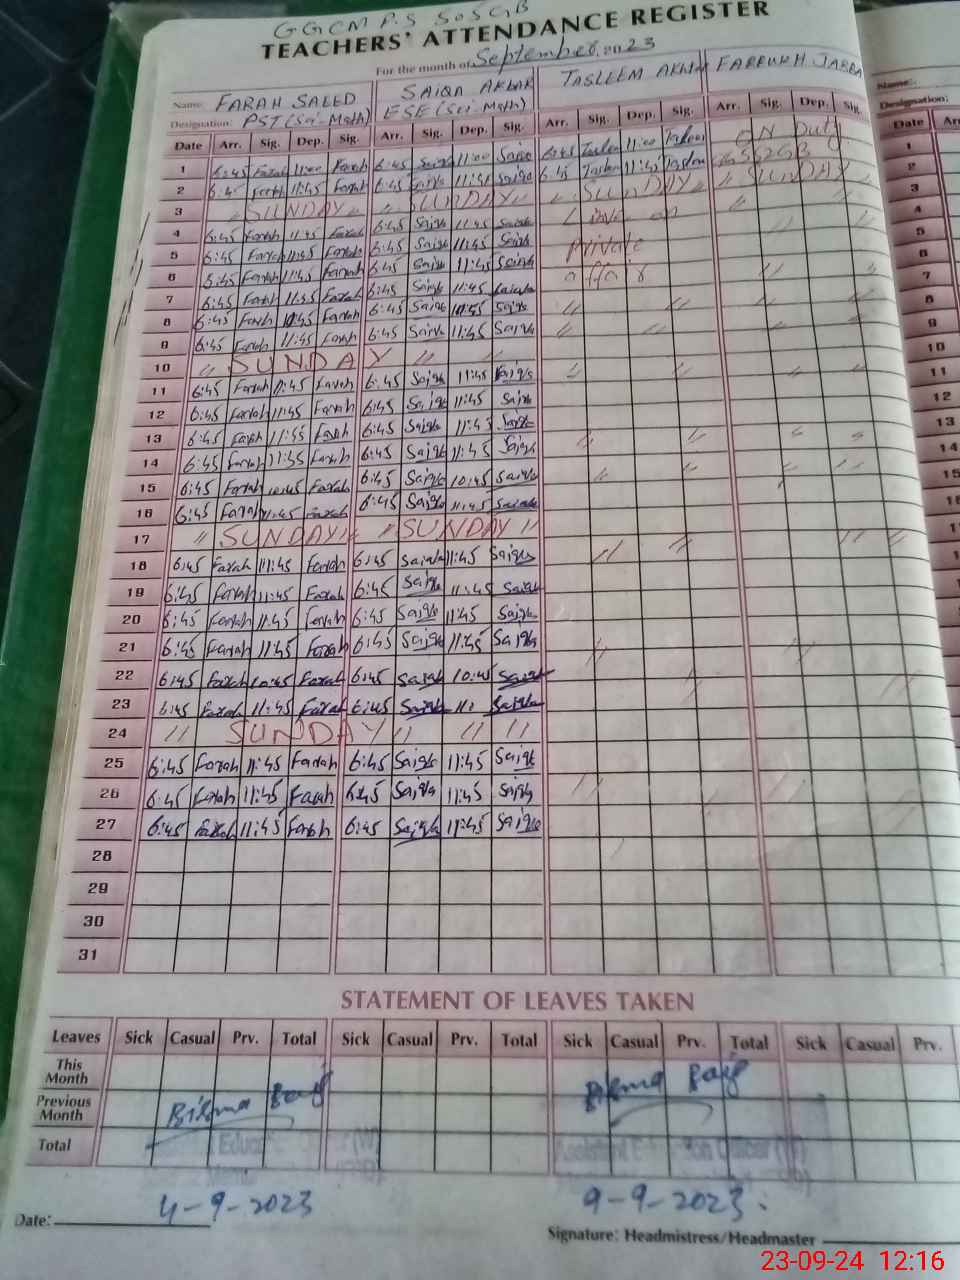 GGCMPS 505GB
TEACHERS' ATTENDANCE REGISTER
For the month of September. 2023
Name: FARAH SAEED SAIQA AKBAR TASLEEM AKHTAR FARRUKH JABBA Name:
Designation: PST (Sci-Math) ESE (Sci-Math) Designation:
Date Arr. Sig. Dep. Sig. Arr. Sig. Dep. Sig. Arr. Sig. Dep. Sig. Arr. Sig. Dep. Sig. Date
1 6:45 Farah 11:00 Farah 6:45 Saiqa 11:00 Saiqa 6:45 Taslem 11:00 ON Duty 1
2 6:45 Farah 11:45 Farah 6:45 Saiqa 11:45 Saiqa 6:45 Taslem 11:45 Taslem 2
3 " SUNDAY " " SUNDAY " " SUNDAY " " SUNDAY 3
4 6:45 Farah 11:45 Farah 6:45 Saiqa 11:45 Saiqa on 4
5 6:45 Farah 11:45 Farah 6:45 Saiqa 11:45 Saiqa Private 5
6 6:45 Farah 11:45 Farah 6:45 Saiqa 11:45 Saiqa affair 6
7 6:45 Farah 11:45 Farah 6:45 Saiqa 11:45 Saiqa 7
8 6:45 Farah 10:45 Farah 6:45 Saiqa 10:45 Saiqa 8
9 6:45 Farah 11:45 Farah 6:45 Saiqa 11:45 Saiqa 9
10 " SUNDAY " 10
11 6:45 Farah 11:45 Farah 6:45 Saiqa 11:45 Saiqa 11
12 6:45 Farah 11:45 Farah 6:45 Saiqa 11:45 Saiqa 12
13 6:45 Farah Farah 6:45 Saiqa 11:45 Saiqa 13
14 6:45 Farah Farah 6:45 Saiqa 11:45 Saiqa 14
15 6:45 Farah 10:45 Farah 6:45 Saiqa 10:45 Saiqa 15
16 6:45 Farah 11:45 Farah 6:45 Saiqa 11:45 Saiqa
17 " SUNDAY " " SUNDAY "
18 6:45 Farah 11:45 Farah 6:45 Saiqa 11:45 Saiqa
19 6:45 Farah 11:45 Farah 6:45 Saiqa 11:45 Saiqa
20 6:45 Farah 11:45 Farah 6:45 Saiqa 11:45 Saiqa
21 6:45 Farah 11:45 Farah 6:45 Saiqa 11:45 Saiqa
22 6:45 Farah 10:45 Farah 6:45 Saiqa 10:45 Saiqa
23 6:45 Farah 11:45 Farah 6:45 Saiqa Saiqa
24 " SUNDAY " " "
25 6:45 Farah 11:45 Farah 6:45 Saiqa 11:45 Saiqa
26 6:45 Farah 11:45 Farah 6:45 Saiqa 11:45 Saiqa
27 6:45 Farah 11:45 Farah 6:45 Saiqa 11:45 Saiqa
28
29
30
31
STATEMENT OF LEAVES TAKEN
Leaves Sick Casual Prv. Total Sick Casual Prv. Total Sick Casual Prv. Total Sick Casual Prv.
This Month
Previous Month
Total
Bisma Baig Bisma Baig
Assistant Education Officer (W)
4-9-2023 9-9-2023.
Date:
Signature: Headmistress/Headmaster
23-09-24 12:16